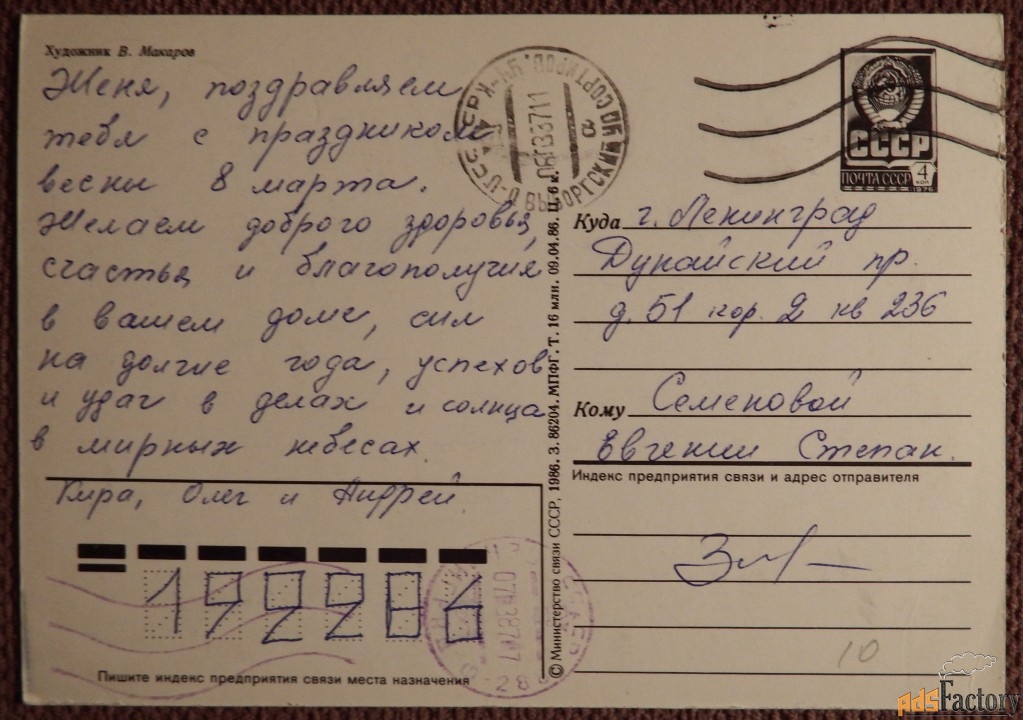 Художник В. Макаров
Женя, поздравляем
тебя с праздником
весны 8 марта.
Желаем доброго здоровья,
счастья и благополучия
в вашем доме, сил
на долгие года, успехов
и удач в делах и солнца
в мирных небесах.
Кира, Олег и Андрей.
Пишите индекс предприятия связи места назначения
© Министерство связи СССР, 1986. З. 86204. МПФГ. Т. 16 млн. 09.04.86. Ц. 6 к.
СССР
ПОЧТА СССР 4 КОП
1976
Куда г. Ленинград
Дунайский пр.
д. 51 кор. 2 кв 236
Кому Семеновой
Евгении Степан.
Индекс предприятия связи и адрес отправителя
10
AdsFactory